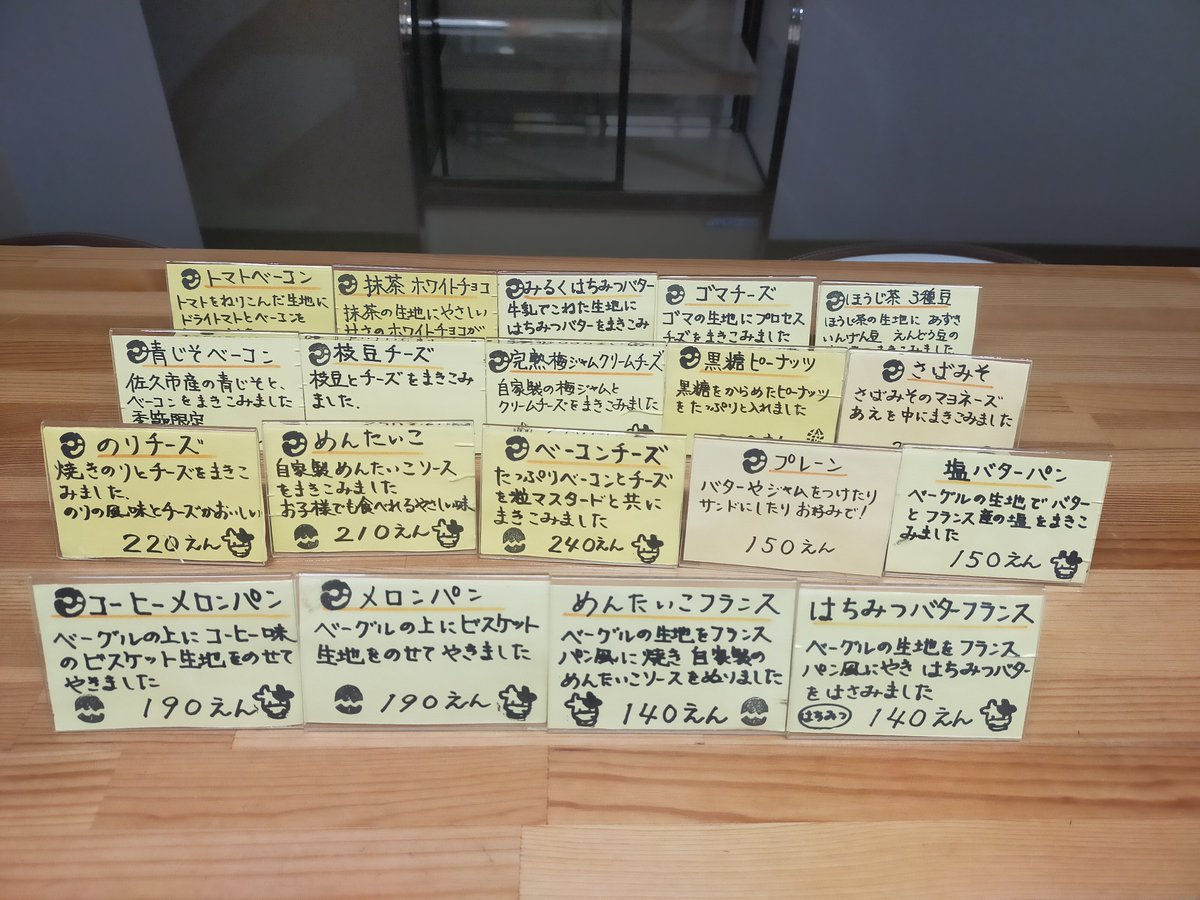 トマトベーコン
トマトをねりこんだ生地に
ドライトマトとベーコンを
抹茶 ホワイトチョコ
抹茶の生地にやさしい
甘さのホワイトチョコが
みるくはちみつバター
牛乳でこねた生地に
はちみつバターをまきこみ
ゴマチーズ
ゴマの生地にプロセス
チーズをまきこみました
ほうじ茶 3種豆
ほうじ茶の生地に あずき
いんげん豆 えんどう豆の
青じそベーコン
佐久市産の青じそと、
ベーコンをまきこみました
季節限定
枝豆チーズ
枝豆とチーズをまきこみ
ました.
完熟梅ジャムクリームチーズ
自家製の梅ジャムと
クリームチーズをまきこみました
黒糖ピーナッツ
黒糖をからめたピーナッツ
をたっぷりと入れました
さばみそ
さばみそのマヨネーズ
あえを中にまきこみました
のりチーズ
焼きのりとチーズをまきこ
みました.
のりの風味とチーズがおいしい
220えん
めんたいこ
自家製めんたいこソース
をまきこみました
お子様でも食べれるやさしい味
210えん
ベーコンチーズ
たっぷりベーコンとチーズ
を粒マスタードと共に
まきこみました
240えん
プレーン
バターやジャムをつけたり
サンドにしたりお好みで!
150えん
塩バターパン
ベーグルの生地でバター
とフランス産の塩をまきこ
みました
150えん
コーヒーメロンパン
ベーグルの上にコーヒー味
のビスケット生地をのせて
やきました
190えん
メロンパン
ベーグルの上にビスケット
生地をのせてやきました
190えん
めんたいこフランス
ベーグルの生地をフランス
パン風に焼き 自家製の
めんたいこソースをぬりました
140えん
はちみつバターフランス
ベーグルの生地をフランス
パン風にやき はちみつバター
をはさみました
はちみつ 140えん